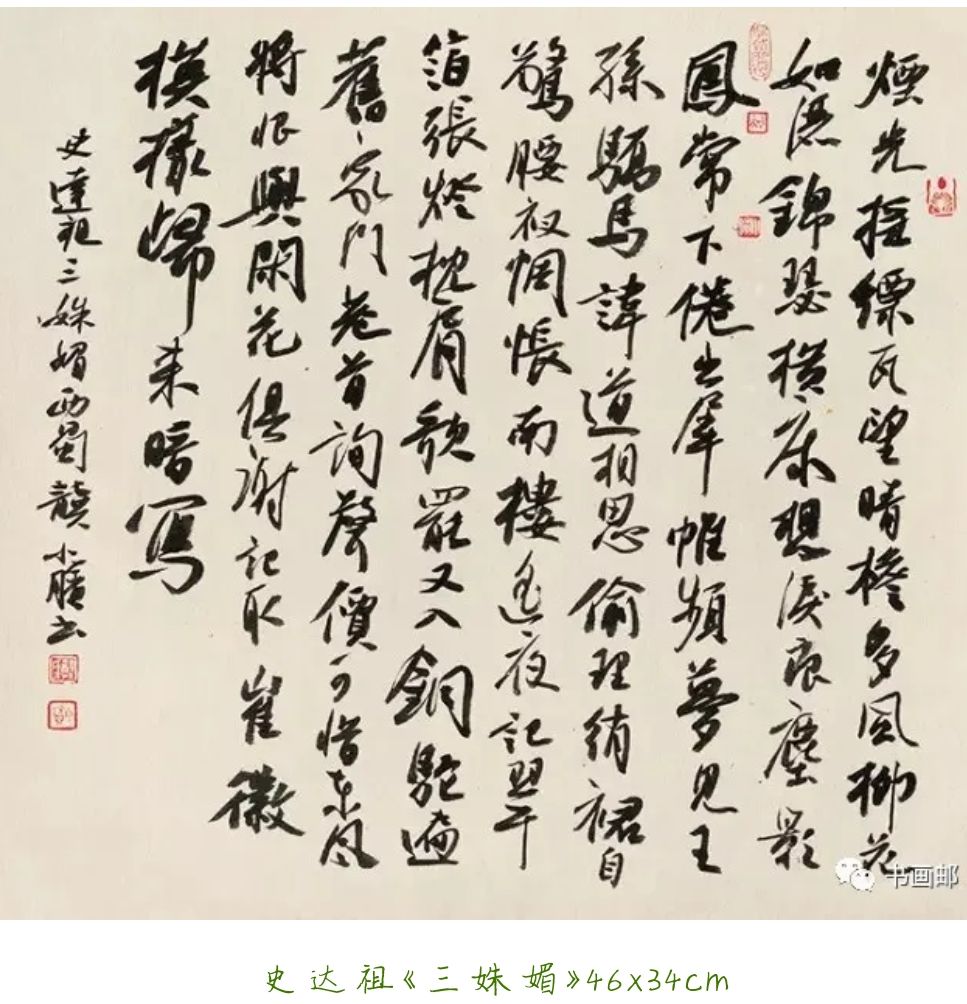 煙光搖縹瓦望晴檐多風柳花
如灑錦瑟橫床想淚痕塵影
鳳常下倦出犀帷頻夢見王
孫驕馬諱道相思偷理綃裙自
驚腰衩惆悵南樓遙夜記翠
箔張燈枕肩歌罷又入銅駝遍
舊家門巷首詢聲價可惜東風
將恨與閑花俱謝記取崔徽
模樣歸來暗寫
史達祖三姝媚西蜀龔小臏書
书画邮
史达祖《三姝媚》46x34cm